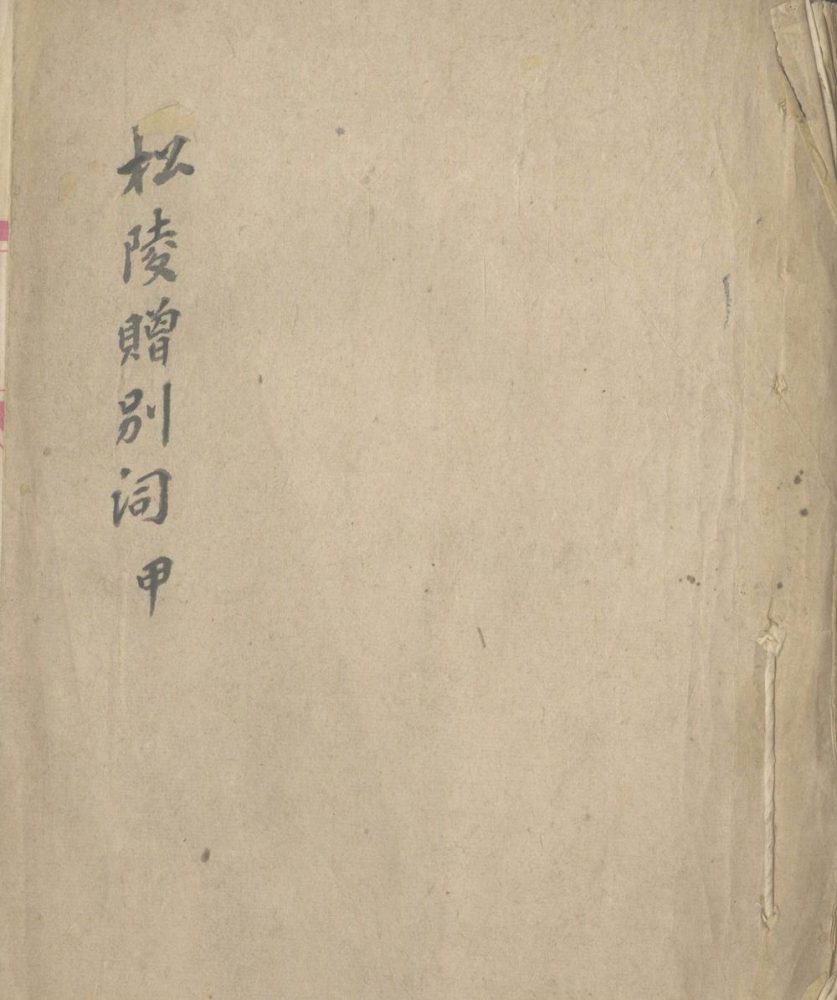 松陵贈别词甲